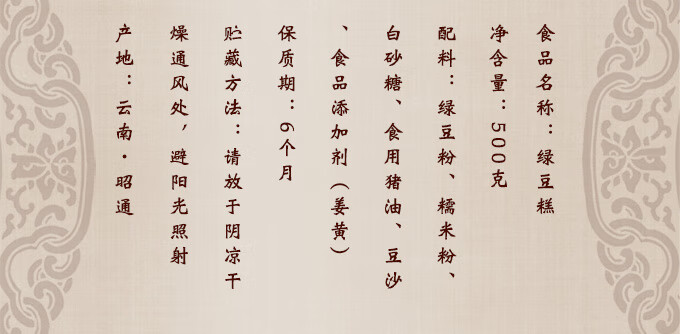 食品名称：绿豆糕
净含量：500克
配料：绿豆粉、糯米粉、
白砂糖、食用猪油、豆沙
、食品添加剂（姜黄）
保质期：6个月
贮藏方法：请放于阴凉干
燥通风处，避阳光照射
产地：云南·昭通